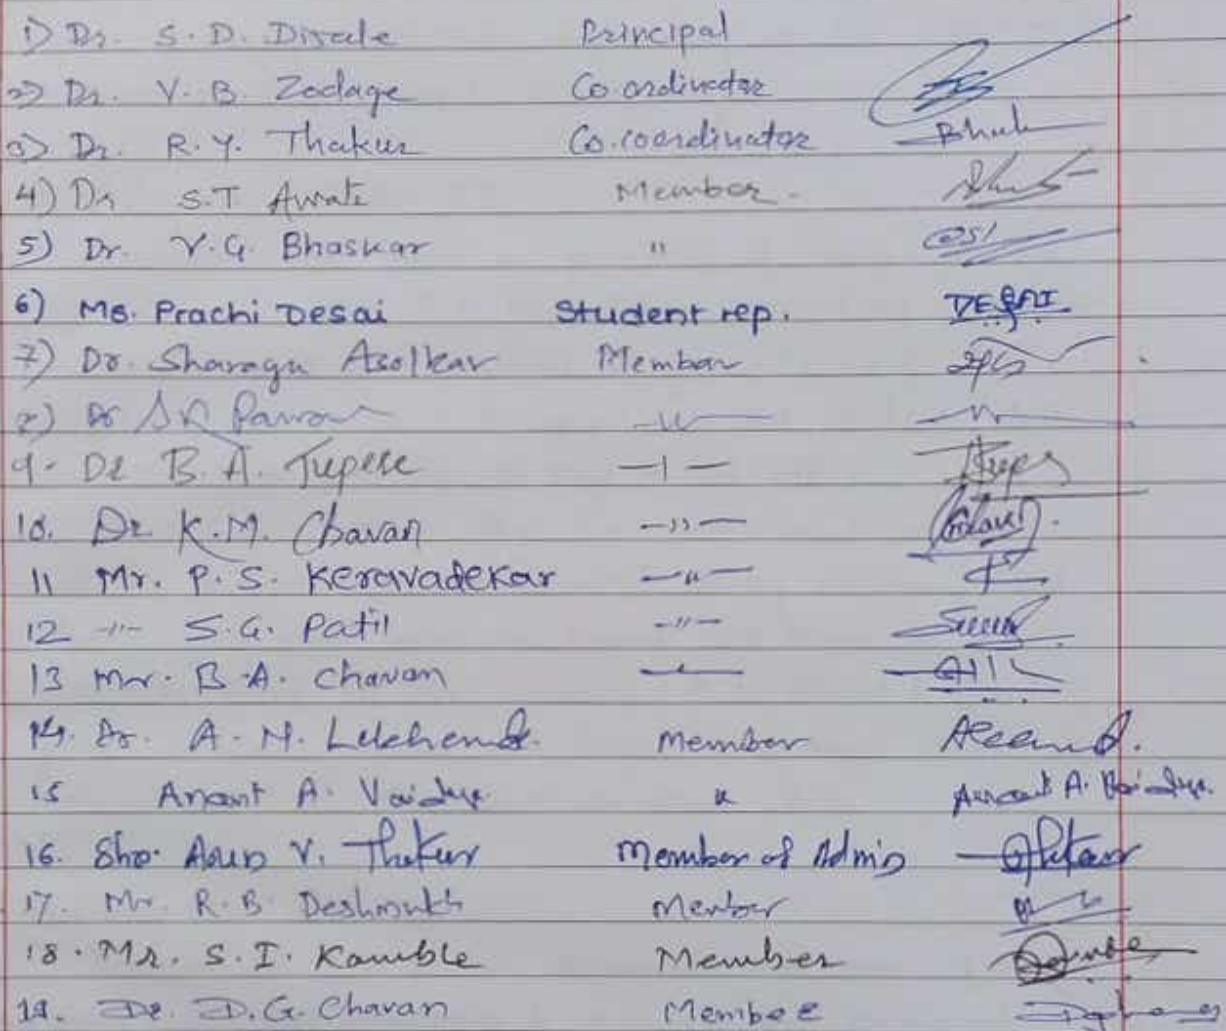 1) Dr. S. D. Disale Principal
2) Dr. V. B. Zodage Co ordinator
3) Dr. R. Y. Thakur Co.coordinator Bhuh
4) Dr S.T Awate Member.
5) Dr. V. G. Bhaskar "
6) Ms. Prachi Desai Student rep. DESAI
7) Dr. Sharayu Asolkar Member
8) Dr S R Pawar —"—
9. Dr B. A. Tupere —"—
10. Dr K.M. Chavan —"— Chavan
11 Mr. P. S. Keravadekar —"—
12 —"— S.G. Patil —"—
13 Mr. B. A. Chavan —"—
14. Dr. A. N. Member
15 Anant A. Vaidya. " Anant A. Vaidya.
16. Arun V. Thakur Member of Admin
17. Mr. R. B. Deshmukh Member
18. Mr. S. I. Kamble Member
19. Dr. D. G. Chavan Member